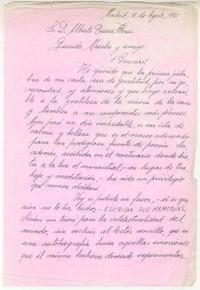 Madrid, 18 de Agosto, 1951
Sr. D. Alberto
Querido Maestro y amigo:
He querido que la primera pala-
bra de mi carta sea de gratitud, por su ge-
nerosidad y atenciones y que hago exten-
sible a la gentileza de la señora de la casa y
también a sus componentes más jóvenes.
Ayer fue un día inolvidable, en un ala de
calma y belleza que es el marco adecuado
para tan prodigiosa fuente de poesía. Se,
además, recibido en el santuario donde bri-
lla a la luz el manantial - su lugar de tra-
bajo y meditación - ha sido un privilegio
que nunca olvidaré.
Voy a pedirle un favor, si es que
aún no lo ha hecho: ESCRIBA SUS MEMORIAS.
Serían un tesoro para la intelectualidad del
mundo, sin excluir al lector sencillo, que en
una autobiografía busca aquellas emociones
que él mismo hubiera deseado experimentar.